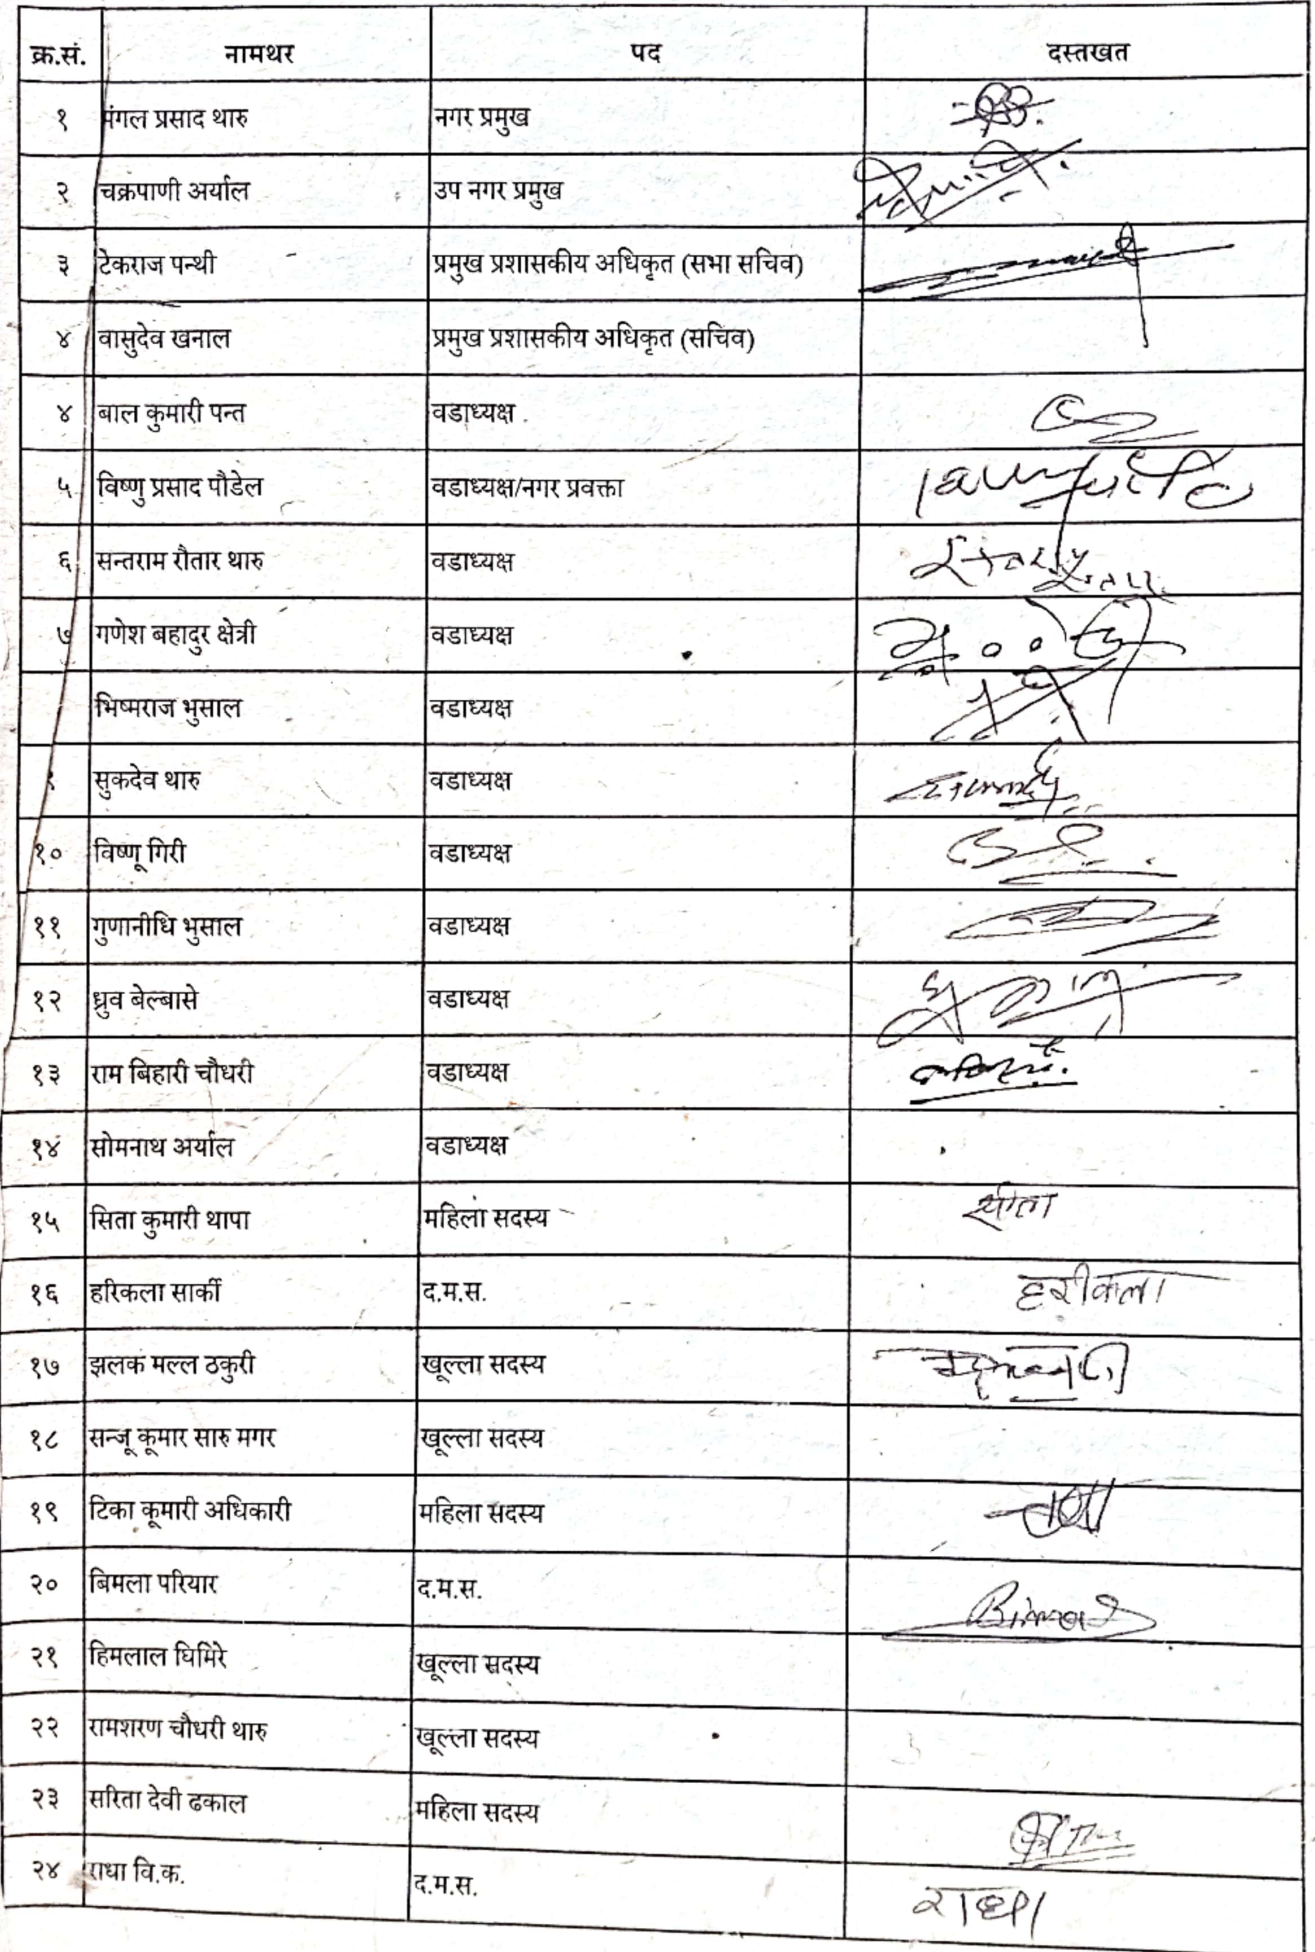 क्र.सं. नामथर पद दस्तखत
१ मंगल प्रसाद थारु नगर प्रमुख
२ चक्रपाणी अर्याल उप नगर प्रमुख
३ टेकराज पन्थी प्रमुख प्रशासकीय अधिकृत (सभा सचिव)
४ वासुदेव खनाल प्रमुख प्रशासकीय अधिकृत (सचिव)
४ बाल कुमारी पन्त वडाध्यक्ष
५ विष्णु प्रसाद पौडेल वडाध्यक्ष/नगर प्रवक्ता
६ सन्तराम रौतार थारु वडाध्यक्ष
७ गणेश बहादुर क्षेत्री वडाध्यक्ष
भिष्मराज भुसाल वडाध्यक्ष
सुकदेव थारु वडाध्यक्ष
१० विष्णू गिरी वडाध्यक्ष
११ गुणानीधि भुसाल वडाध्यक्ष
१२ ध्रुव बेल्बासे वडाध्यक्ष
१३ राम बिहारी चौधरी वडाध्यक्ष
१४ सोमनाथ अर्याल वडाध्यक्ष
१५ सिता कुमारी थापा महिला सदस्य सीता
१६ हरिकला सार्की द.म.स. हरीकला
१७ झलक मल्ल ठकुरी खूल्ला सदस्य
१८ सन्जू कूमार सारु मगर खूल्ला सदस्य
१९ टिका कूमारी अधिकारी महिला सदस्य
२० बिमला परियार द.म.स.
२१ हिमलाल घिमिरे खूल्ला सदस्य
२२ रामशरण चौधरी थारु खूल्ला सदस्य
२३ सरिता देवी ढकाल महिला सदस्य
२४ राधा वि.क. द.म.स. राधा